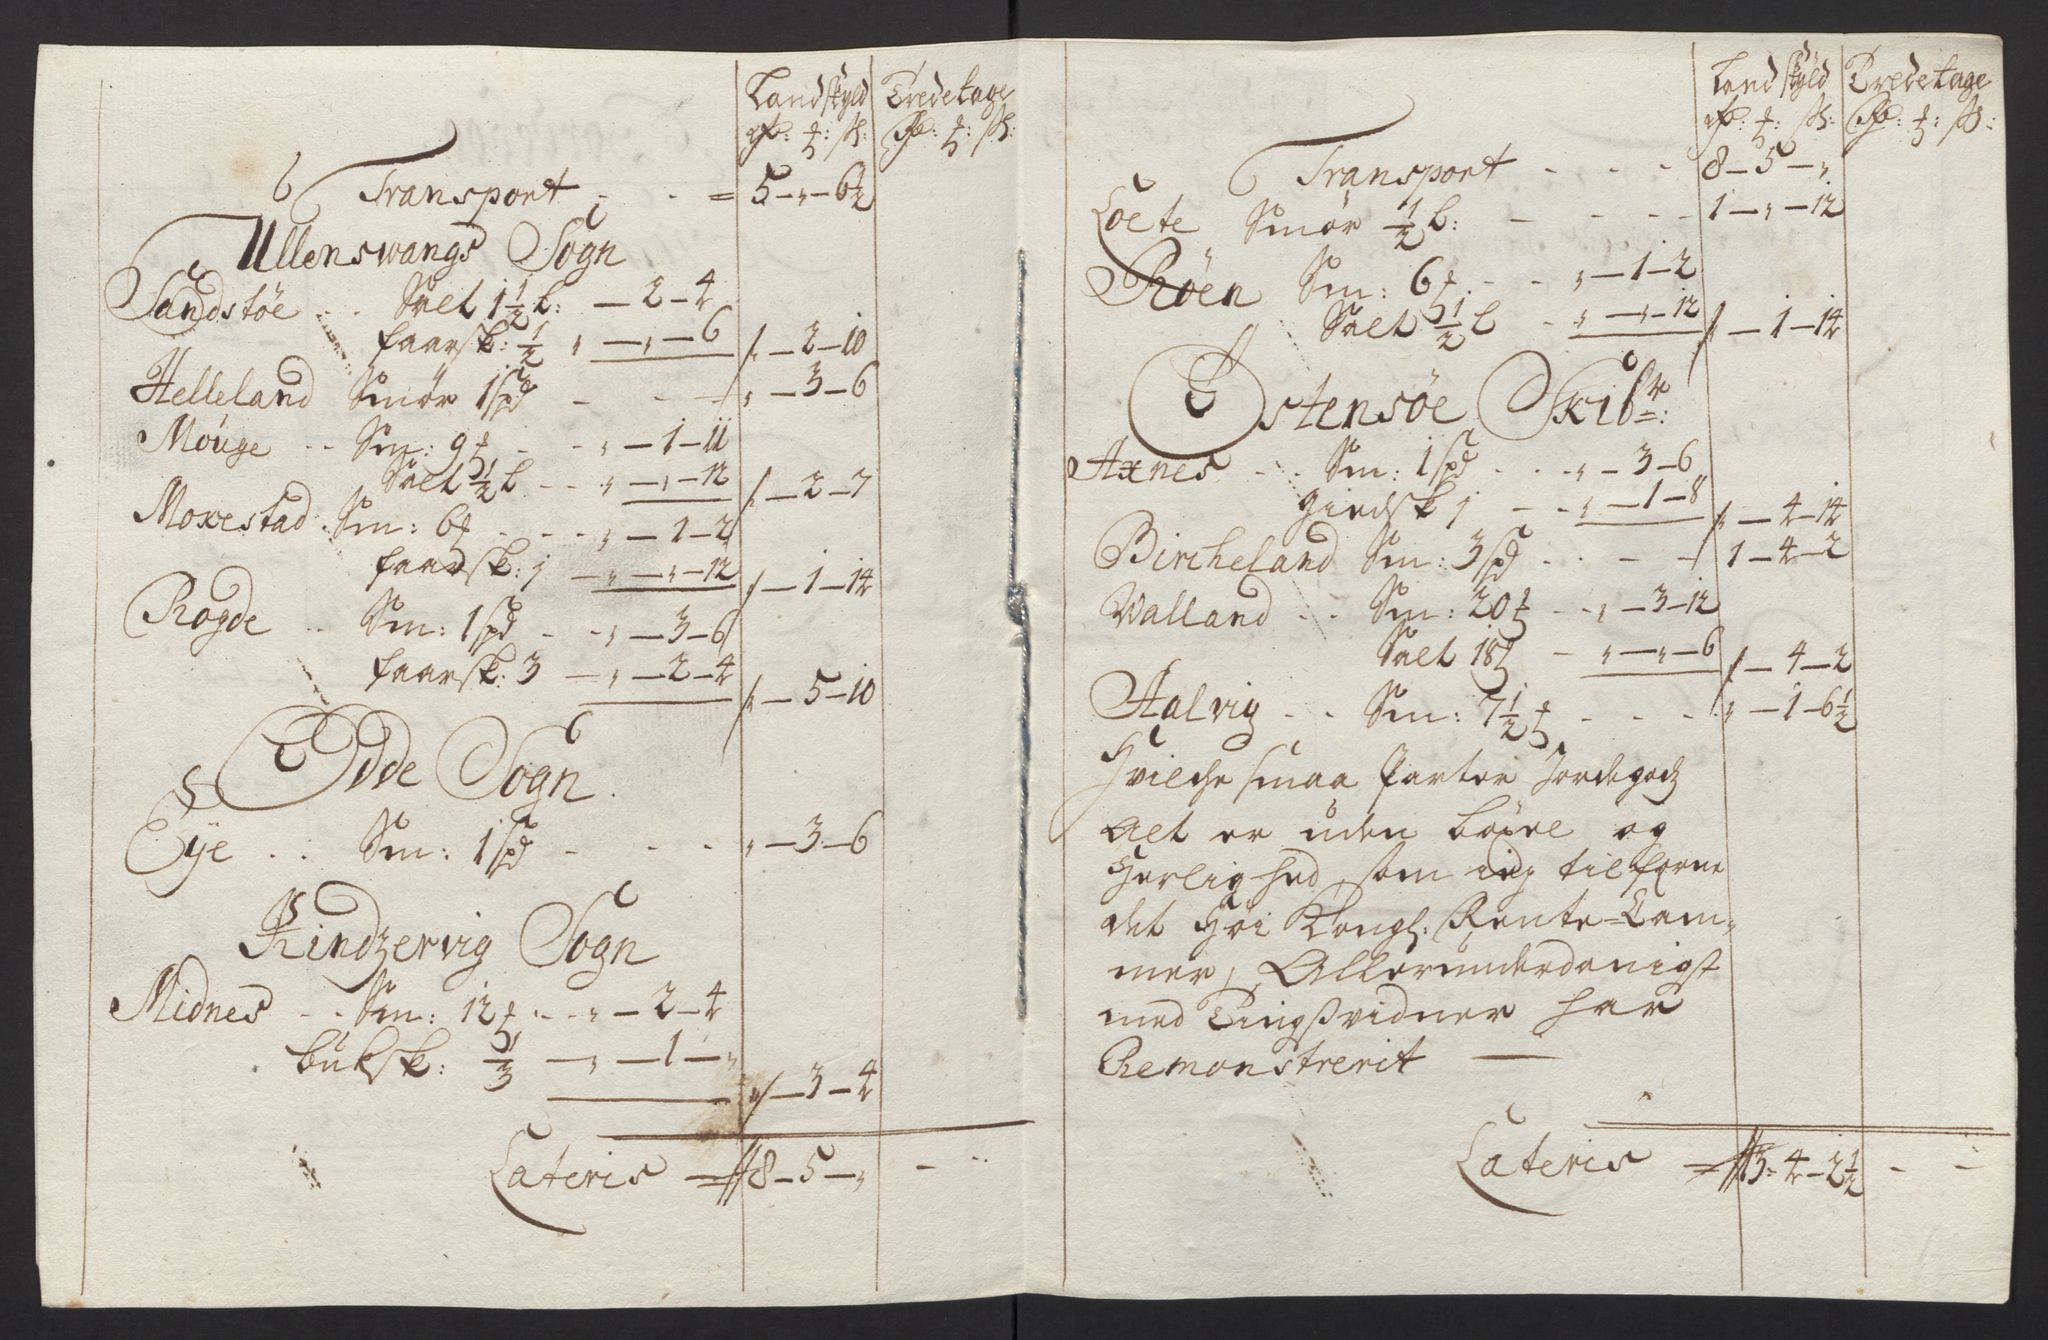 Landskyld Tredetage
rd: ƺ: sk: Rd: ƺ: sk:
Transport - - = 5 - „ - 6½
Ullenswangs Sogn
Sandstöe .. Salt 1½ L: - 2 - 4
faarsk: ½ „ - „ - 6 /: - 2 - 10
Helleland Smör 1 spd - - - „ - 3 - 6
Mouge .. Sm: 9 ƺ - - „ - 1 - 11
Salt ½ L - - „ - „ - 12 /: - 2 - 7
Moxestad . Sm: 6 ƺ - - - „ - 1 - 2
faarsk: 1 - „ - „ - 12 /: - 1 - 14
Rogde .. Sm: 1 spd - - „ - 3 - 6
faarsk: 3 - „ - 2 - 4 /: - 5 - 10
Odde Sogn
Eÿe .. Sm: 1 spd - - - „ - 3 - 6
Kindzervig Sogn
Midnes .. Sm: 12 ƺ - - „ - 2 - 4
buksk: ⅓ - „ - 1 - „ „/ - 3 - 4
Lateris = // 8 - 5 - „ - -
Landskyld Tredetage
rd: ƺ: sk: Rd: ƺ: sk:
Transport - - - 8 - 5 - „
Loete Smör ½ L: - - - 1 - „ - 12
Röen Sm: 6 ƺ - - „ - 1 - 2
Salt ½ L - „ - „ - 12 /: - 1 - 14
Ostensöe Skibr:
Axnes .. Sm: 1 spd - - - „ - 3 - 6
giedsk 1 - - „ - 1 - 8 /: - 4 - 14
Bircheland Sm: 3 spd - - - 1 - 4 - 2
Walland .. Sm: 20 ƺ - - „ - 3 - 12
Salt 18 ƺ - „ - „ - 6 /: - 4 - 2
Aalvig .. Sm: 7½ ƺ - - - „ - 1 - 6½
Hvilche smaa Parter Jordegodz
Alt er uden böxel og
Herlighed, som ieg tilforne
det Höi Kongl: Rente-Cam„
mer, Allerunderdanigst
med Tingsvidner har
Remonstrerit —
Lateris = // 13: 4 - 2½ - -